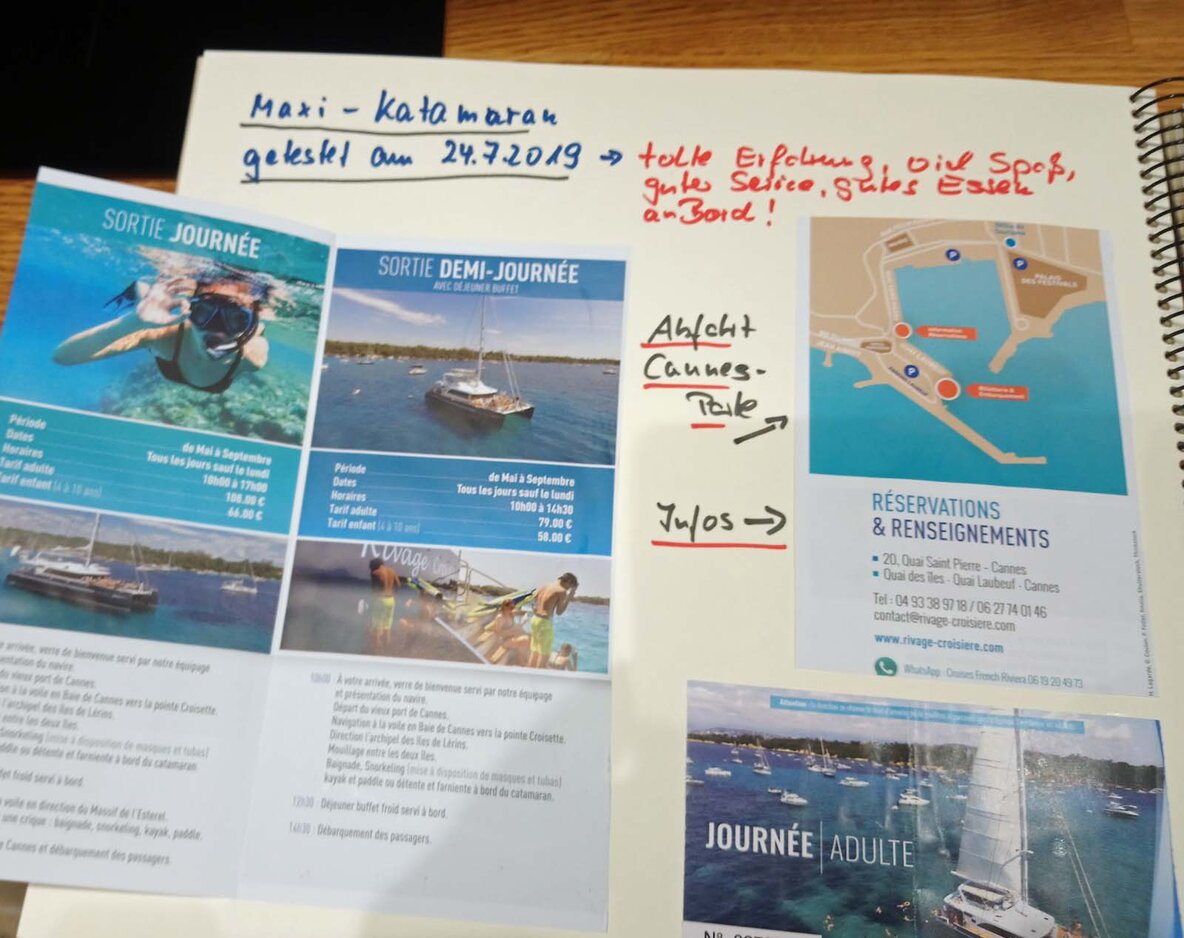 Maxi - Katamaran
getestet am 24.7.2019 → tolle Erfahrung, viel Spaß,
guter Service, gutes Essen
an Bord!
SORTIE JOURNÉE
Période de Mai à Septembre
Dates Tous les jours sauf le lundi
Horaires 10h00 à 17h00
Tarif adulte 108.00 €
Tarif enfant (4 à 10 ans) 66.00 €
arrivée, verre de bienvenue servi par notre équipage
du navire.
du vieux port de Cannes.
à la voile en Baie de Cannes vers la pointe Croisette.
l'archipel des îles de Lérins.
entre les deux îles.
Snorkeling (mise à disposition de masques et tubas)
ou détente et farniente à bord du catamaran.
froid servi à bord.
voile en direction du Massif de l'Esterel.
une crique : baignade, snorkeling, kayak, paddle.
Cannes et débarquement des passagers.
SORTIE DEMI-JOURNÉE
AVEC DÉJEUNER BUFFET
Période de Mai à Septembre
Dates Tous les jours sauf le lundi
Horaires 10h00 à 14h30
Tarif adulte 79.00 €
Tarif enfant (4 à 10 ans) 58.00 €
Rivage
10h00 À votre arrivée, verre de bienvenue servi par notre équipage
et présentation du navire.
Départ du vieux port de Cannes.
Navigation à la voile en Baie de Cannes vers la pointe Croisette.
Direction l'archipel des îles de Lérins.
Mouillage entre les deux îles.
Baignade, Snorkeling (mise à disposition de masques et tubas)
kayak et paddle ou détente et farniente à bord du catamaran.
12h30 Déjeuner buffet froid servi à bord.
14h30 Débarquement des passagers.
Abfahrt
Cannes-
→
Infos →
P
P
PALAIS
DES FESTIVALS
Information
Réservations
P
Billetterie &
Embarquement
RÉSERVATIONS
& RENSEIGNEMENTS
20, Quai Saint Pierre - Cannes
Quai des îles - Quai Laubeuf - Cannes
Tel : 04 93 38 97 18 / 06 27 74 01 46
contact@rivage-croisiere.com
www.rivage-croisiere.com
WhatsApp : Cruises French Riviera 06 19 20 49 73
JOURNÉE | ADULTE
N°